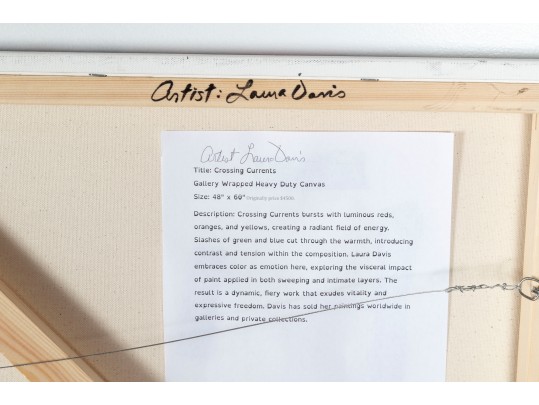 Artist: Laura Davis
Artist Laura Davis
Title: Crossing Currents
Gallery Wrapped Heavy Duty Canvas
Size: 48" x 60" Originally price
Description: Crossing Currents bursts with luminous reds,
oranges, and yellows, creating a radiant field of energy.
Slashes of green and blue cut through the warmth, introducing
contrast and tension within the composition. Laura Davis
embraces color as emotion here, exploring the visceral impact
of paint applied in both sweeping and intimate layers. The
result is a dynamic, fiery work that exudes vitality and
expressive freedom. Davis has sold her paintings worldwide in
galleries and private collections.